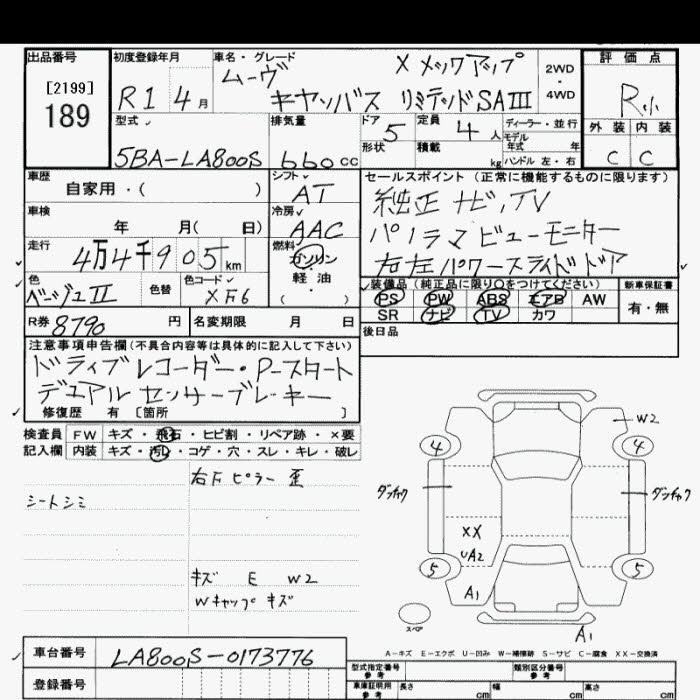 出品番号
[2199]
189
初度登録年月
R1 4月
車名・グレード
ムーヴ X メックアップ
キャンバス リミテッドSAⅢ
2WD
・
4WD
評価点
R小
外装 内装
C C
型式
5BA-LA800S
排気量
660cc
ドア
5
形状
定員
4人
積載
kg
ディーラー・並行
モデル
年式 年
ハンドル 左・右
車歴
自家用・( )
シフト
AT
車検
年 月( 日)
冷房
AAC
走行
4万4千905km
燃料
ガソリン
・
軽油
( )
色
ベージュⅡ
色替
色コード
XF6
R券 8790 円
名変期限 月 日
セールスポイント (正常に機能するものに限ります)
純正ナビ、TV
パノラマビューモニター
右左パワースライドドア
装備品(純正品に限り○をつけてください)
PS PW ABS エアB AW
SR ナビ TV カワ
新車保証書
有・無
後日品
注意事項申告欄(不具合内容等は具体的に記入して下さい)
ドライブレコーダー・P-スタート
デュアルセンサーブレーキー
修復歴 有 [箇所 ]
検査員
記入欄
FW キズ・飛石・ヒビ割・リペア跡・×要
内装 キズ・汚れ・コゲ・穴・スレ・キレ・破レ
右Fピラー歪
シートシミ
キズ E W2
Wキャップキズ
W2
4
4
ダンチャク
ダンチャク
XX
UA2
5
5
A1
スペア
A1
A-キズ E-エクボ U-凹み W-補修跡 S-サビ C-腐食 XX-交換済
車台番号
LA800S-0173776
登録番号
型式指定番号
参考
類別区分番号
参考
車庫証明用
参考
長さ cm
幅 cm
高さ cm